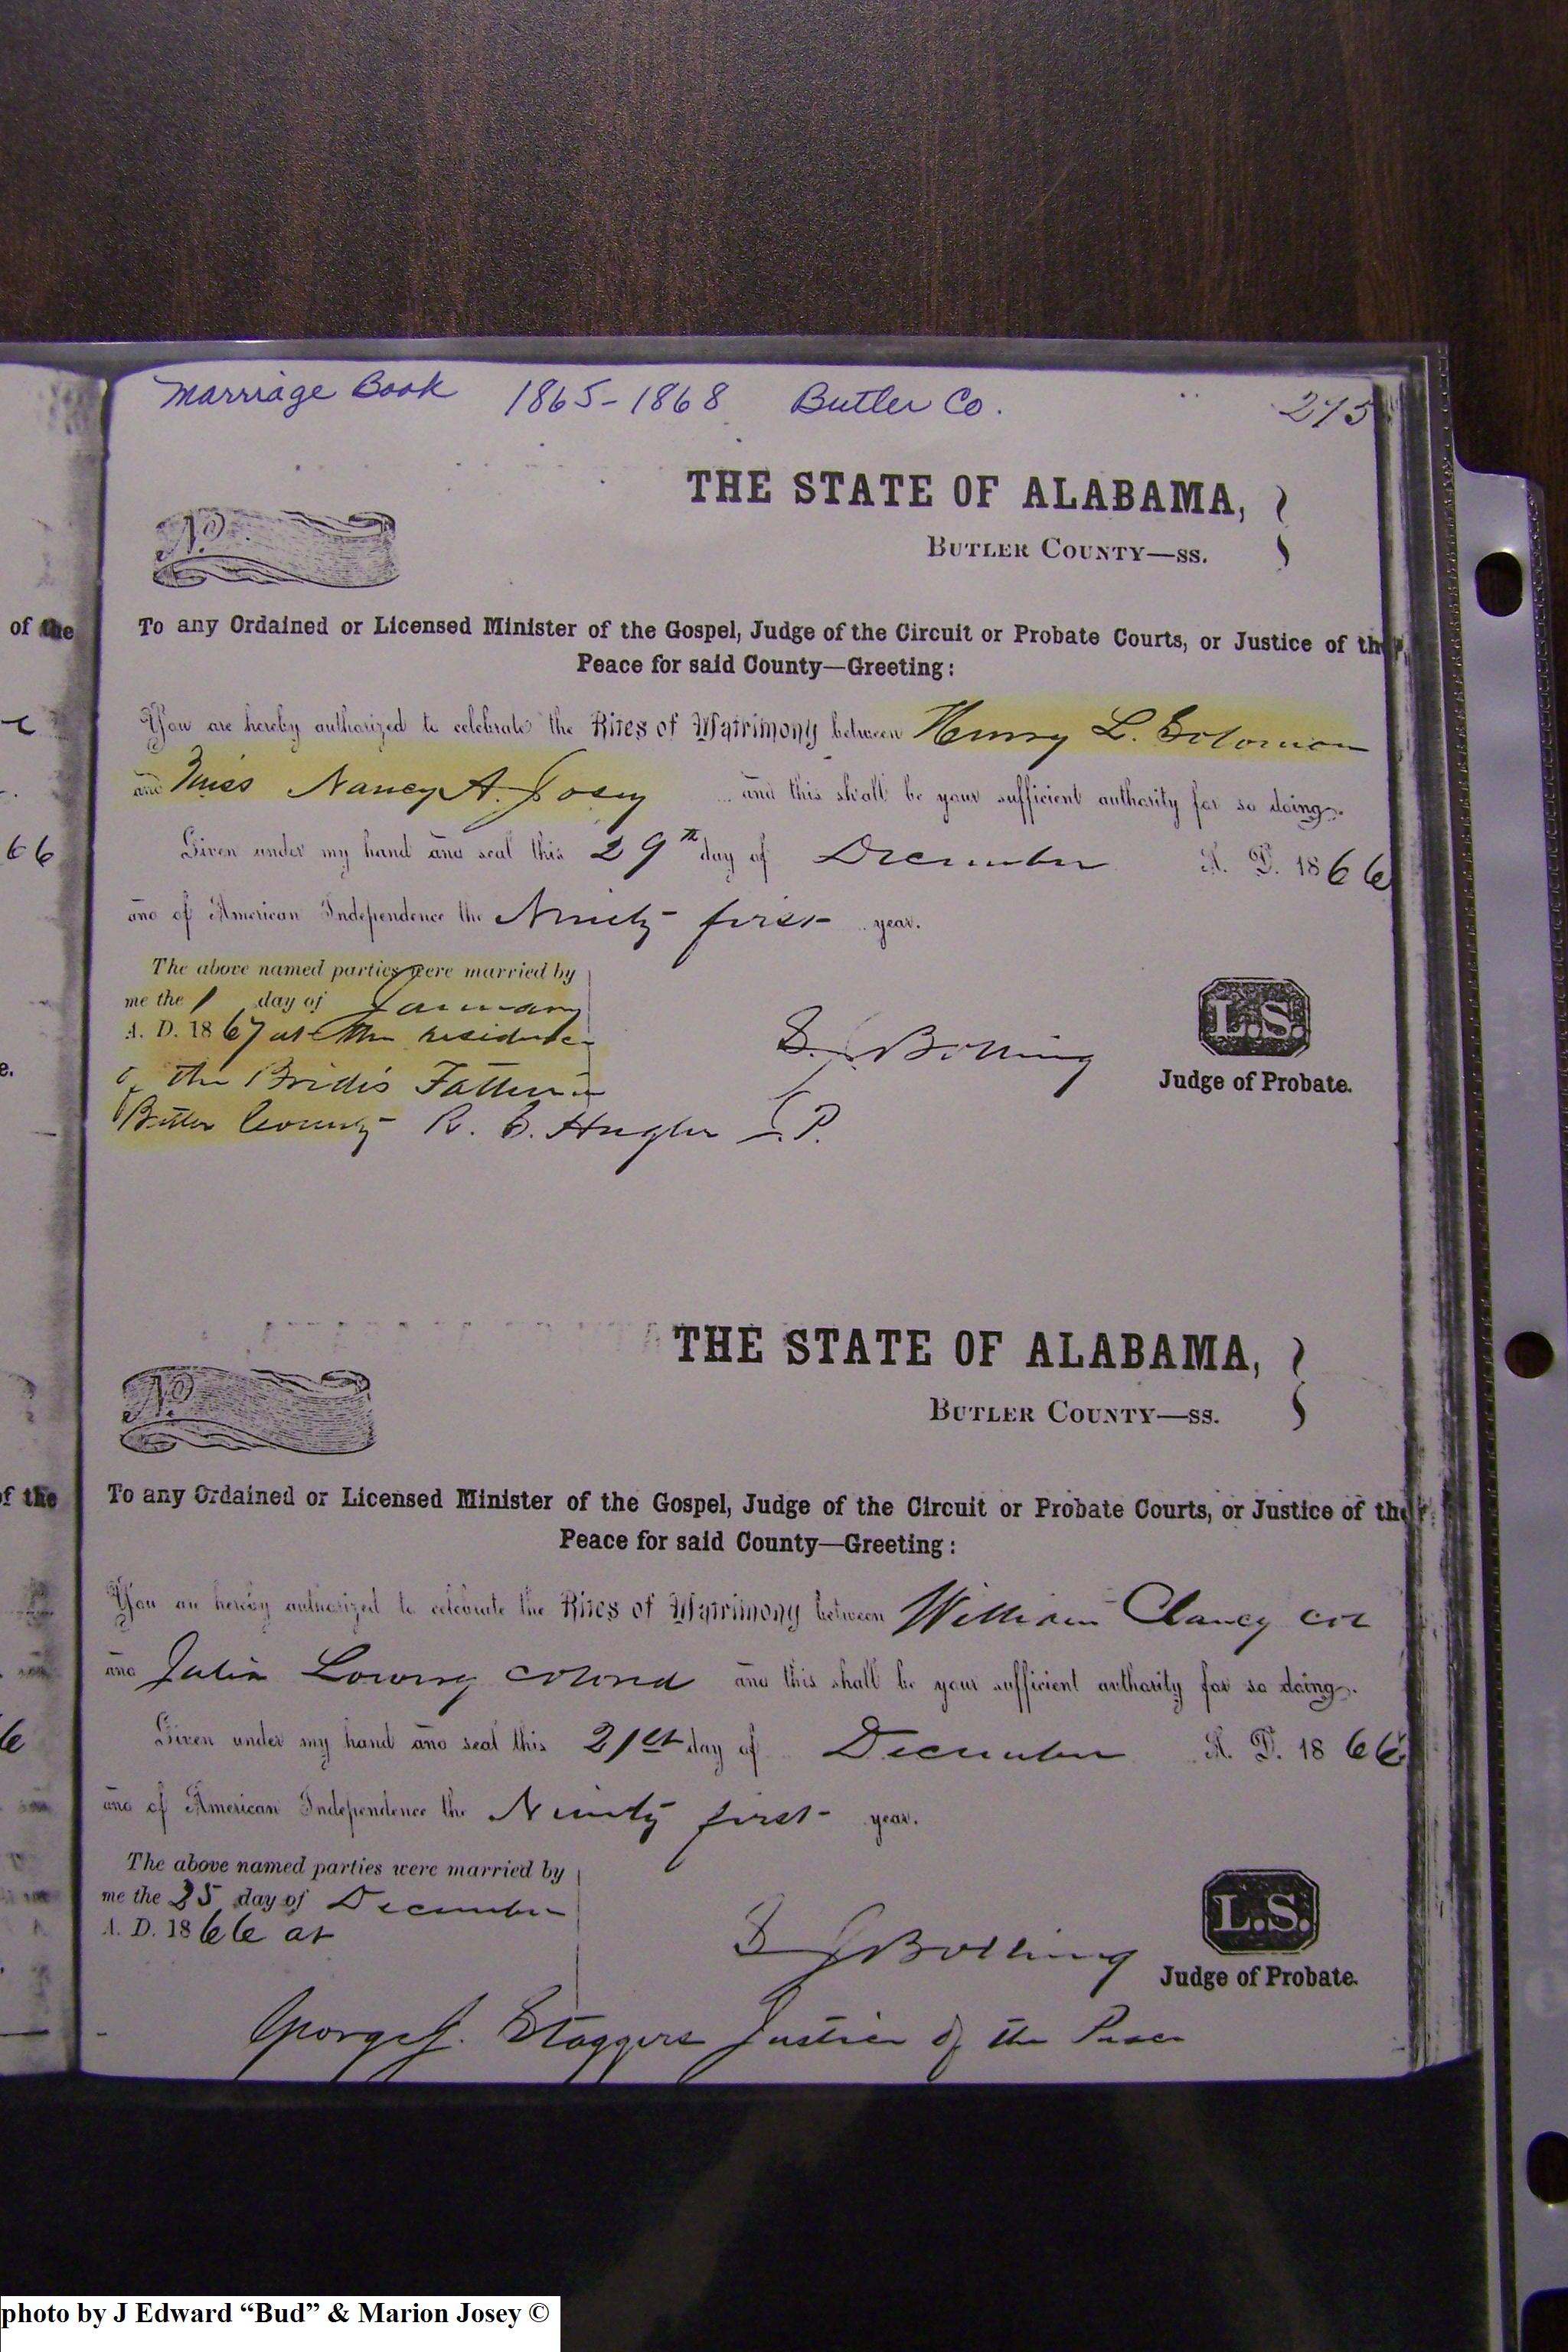 Marriage Book 1865-1868 Butler Co. 275
THE STATE OF ALABAMA,
No.
BUTLER COUNTY—SS.
To any Ordained or Licensed Minister of the Gospel, Judge of the Circuit or Probate Courts, or Justice of the
Peace for said County—Greeting:
You are hereby authorized to celebrate the Rites of Matrimony between Henry L. Solomon
and Miss Nancy A. Josey and this shall be your sufficient authority for so doing.
Given under my hand and seal this 29th day of December A. D. 1866
and of American Independence the Ninety first year.
The above named parties were married by
me the 1 day of January
A. D. 1867 at the residence
of the Brides Father in
Butler County R. C. Hughes J.P.
S. J. Bolling
L.S.
Judge of Probate.
THE STATE OF ALABAMA,
No.
BUTLER COUNTY—SS.
To any Ordained or Licensed Minister of the Gospel, Judge of the Circuit or Probate Courts, or Justice of the
Peace for said County—Greeting:
You are hereby authorized to celebrate the Rites of Matrimony between William Clancy col
and Julia Lowry colored and this shall be your sufficient authority for so doing.
Given under my hand and seal this 21st day of December A. D. 1866
and of American Independence the Ninety first year.
The above named parties were married by
me the 25 day of December
A. D. 1866 at
S J Bolling
L.S.
Judge of Probate.
George J. Staggers Justice of the Peace
of the
66
e.
of the
photo by J Edward “Bud” & Marion Josey ©